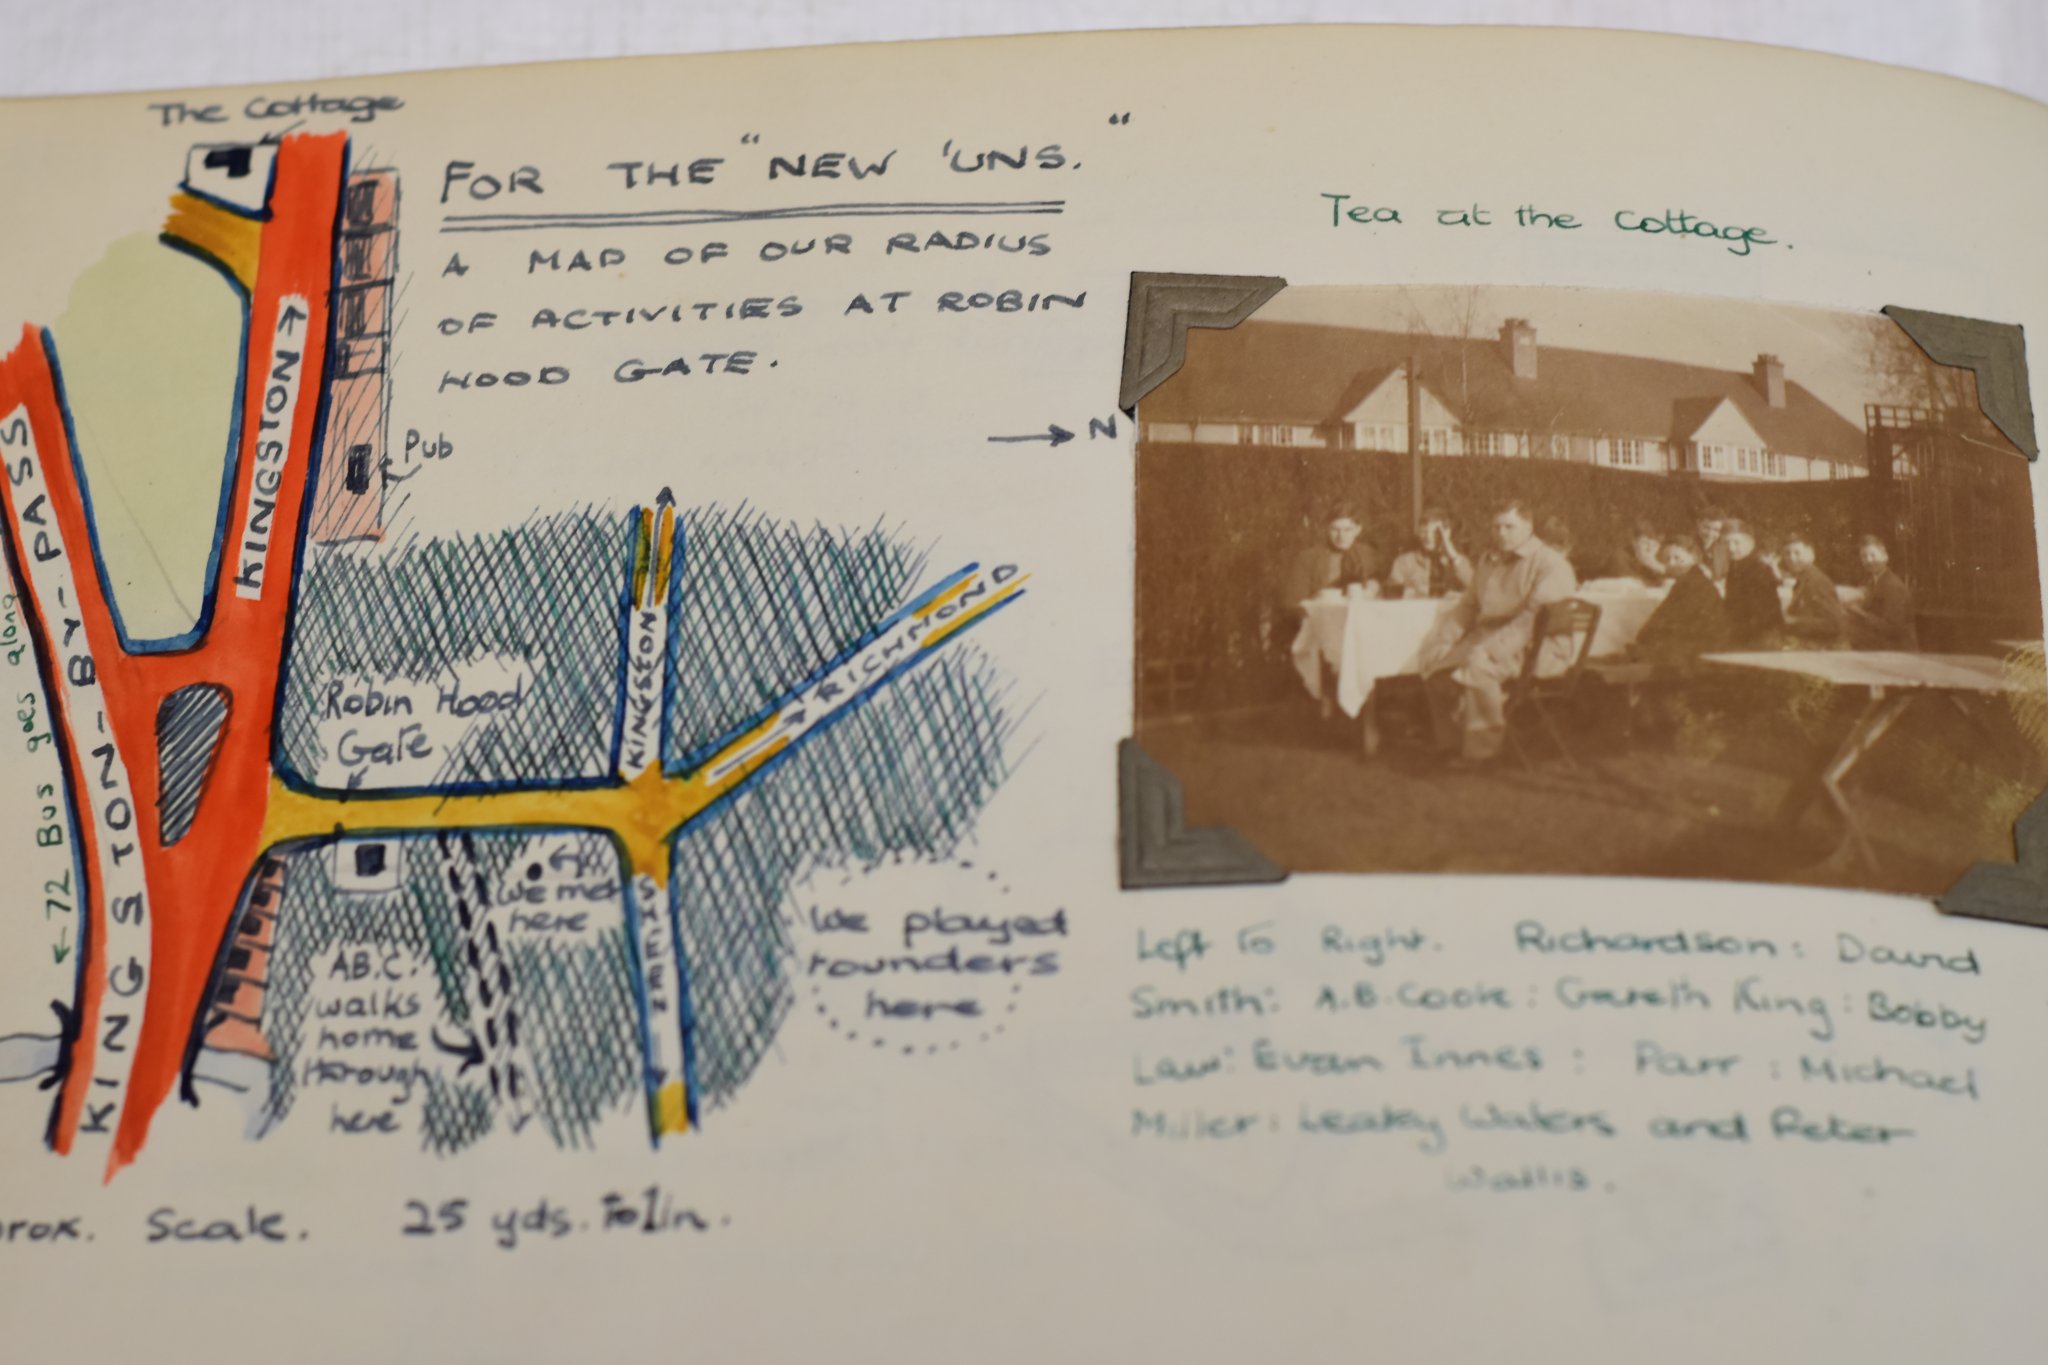 The Cottage
FOR THE "NEW 'UNS."
A MAP OF OUR RADIUS
OF ACTIVITIES AT ROBIN
HOOD GATE.
N
Pub
KINGSTON
KINGSTON-BY-PASS
← 72 Bus goes along
Robin Hood
Gate
KINGSTON
RICHMOND
We met
here
A.B.C.
walks
home
through
here
We played
rounders
here
Scale. 25 yds. to 1 in.
Tea at the Cottage.
Left to Right. Richardson: David
Smith: A.B. Cook: Gareth King: Bobby
Law: Evan Innes: Parr: Michael
Miller: Leaky Waters and Peter
Wallis.